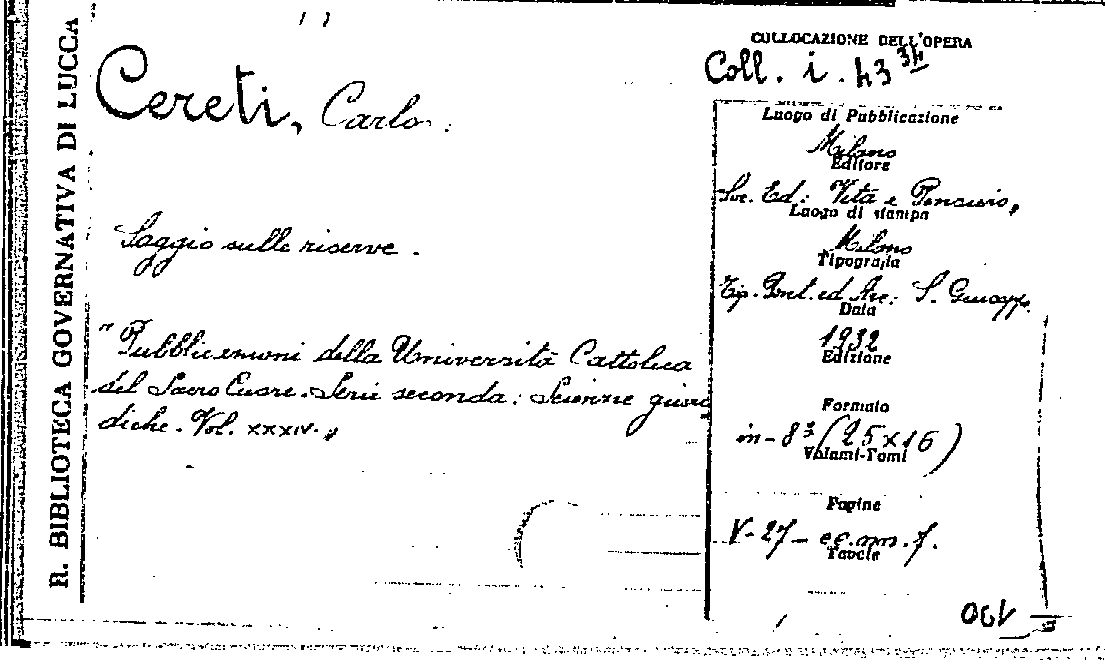 R. BIBLIOTECA GOVERNATIVA DI LUCCA
Cereti, Carlo.
Saggio sulle riserve.
"Pubblicazioni della Università Cattolica
del Sacro Cuore. Serie seconda: Scienze giuri
diche. Vol. XXXIV."
COLLOCAZIONE DELL'OPERA
Coll. i. 43 34
Luogo di Pubblicazione
Milano
Editore
Soc. Ed: Vita e Pensiero,
Luogo di stampa
Milano
Tipografia
Tip. Pont. ed Arc: S. Giuseppe
Data
1932
Edizione
Formato
in-8° (25x16)
Volumi-Tomi
Pagine
V-27- cc. nn. 7.
Tavole